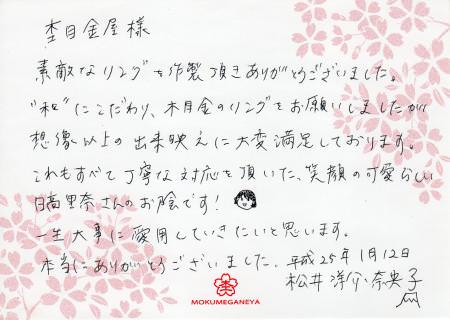 杢目金屋様
素敵なリングを作製頂きありがとうございました。
"和"にこだわり、木目金のリングをお願いしましたが
想像以上の出来映えに大変満足しております。
これもすべて丁寧な対応を頂いた、笑顔の可愛らしい
日高里奈さんのお陰です!
一生大事に愛用していきたいと思います。
本当にありがとうございました。平成25年1月12日
松井洋介・奈央子
MOKUMEGANEYA